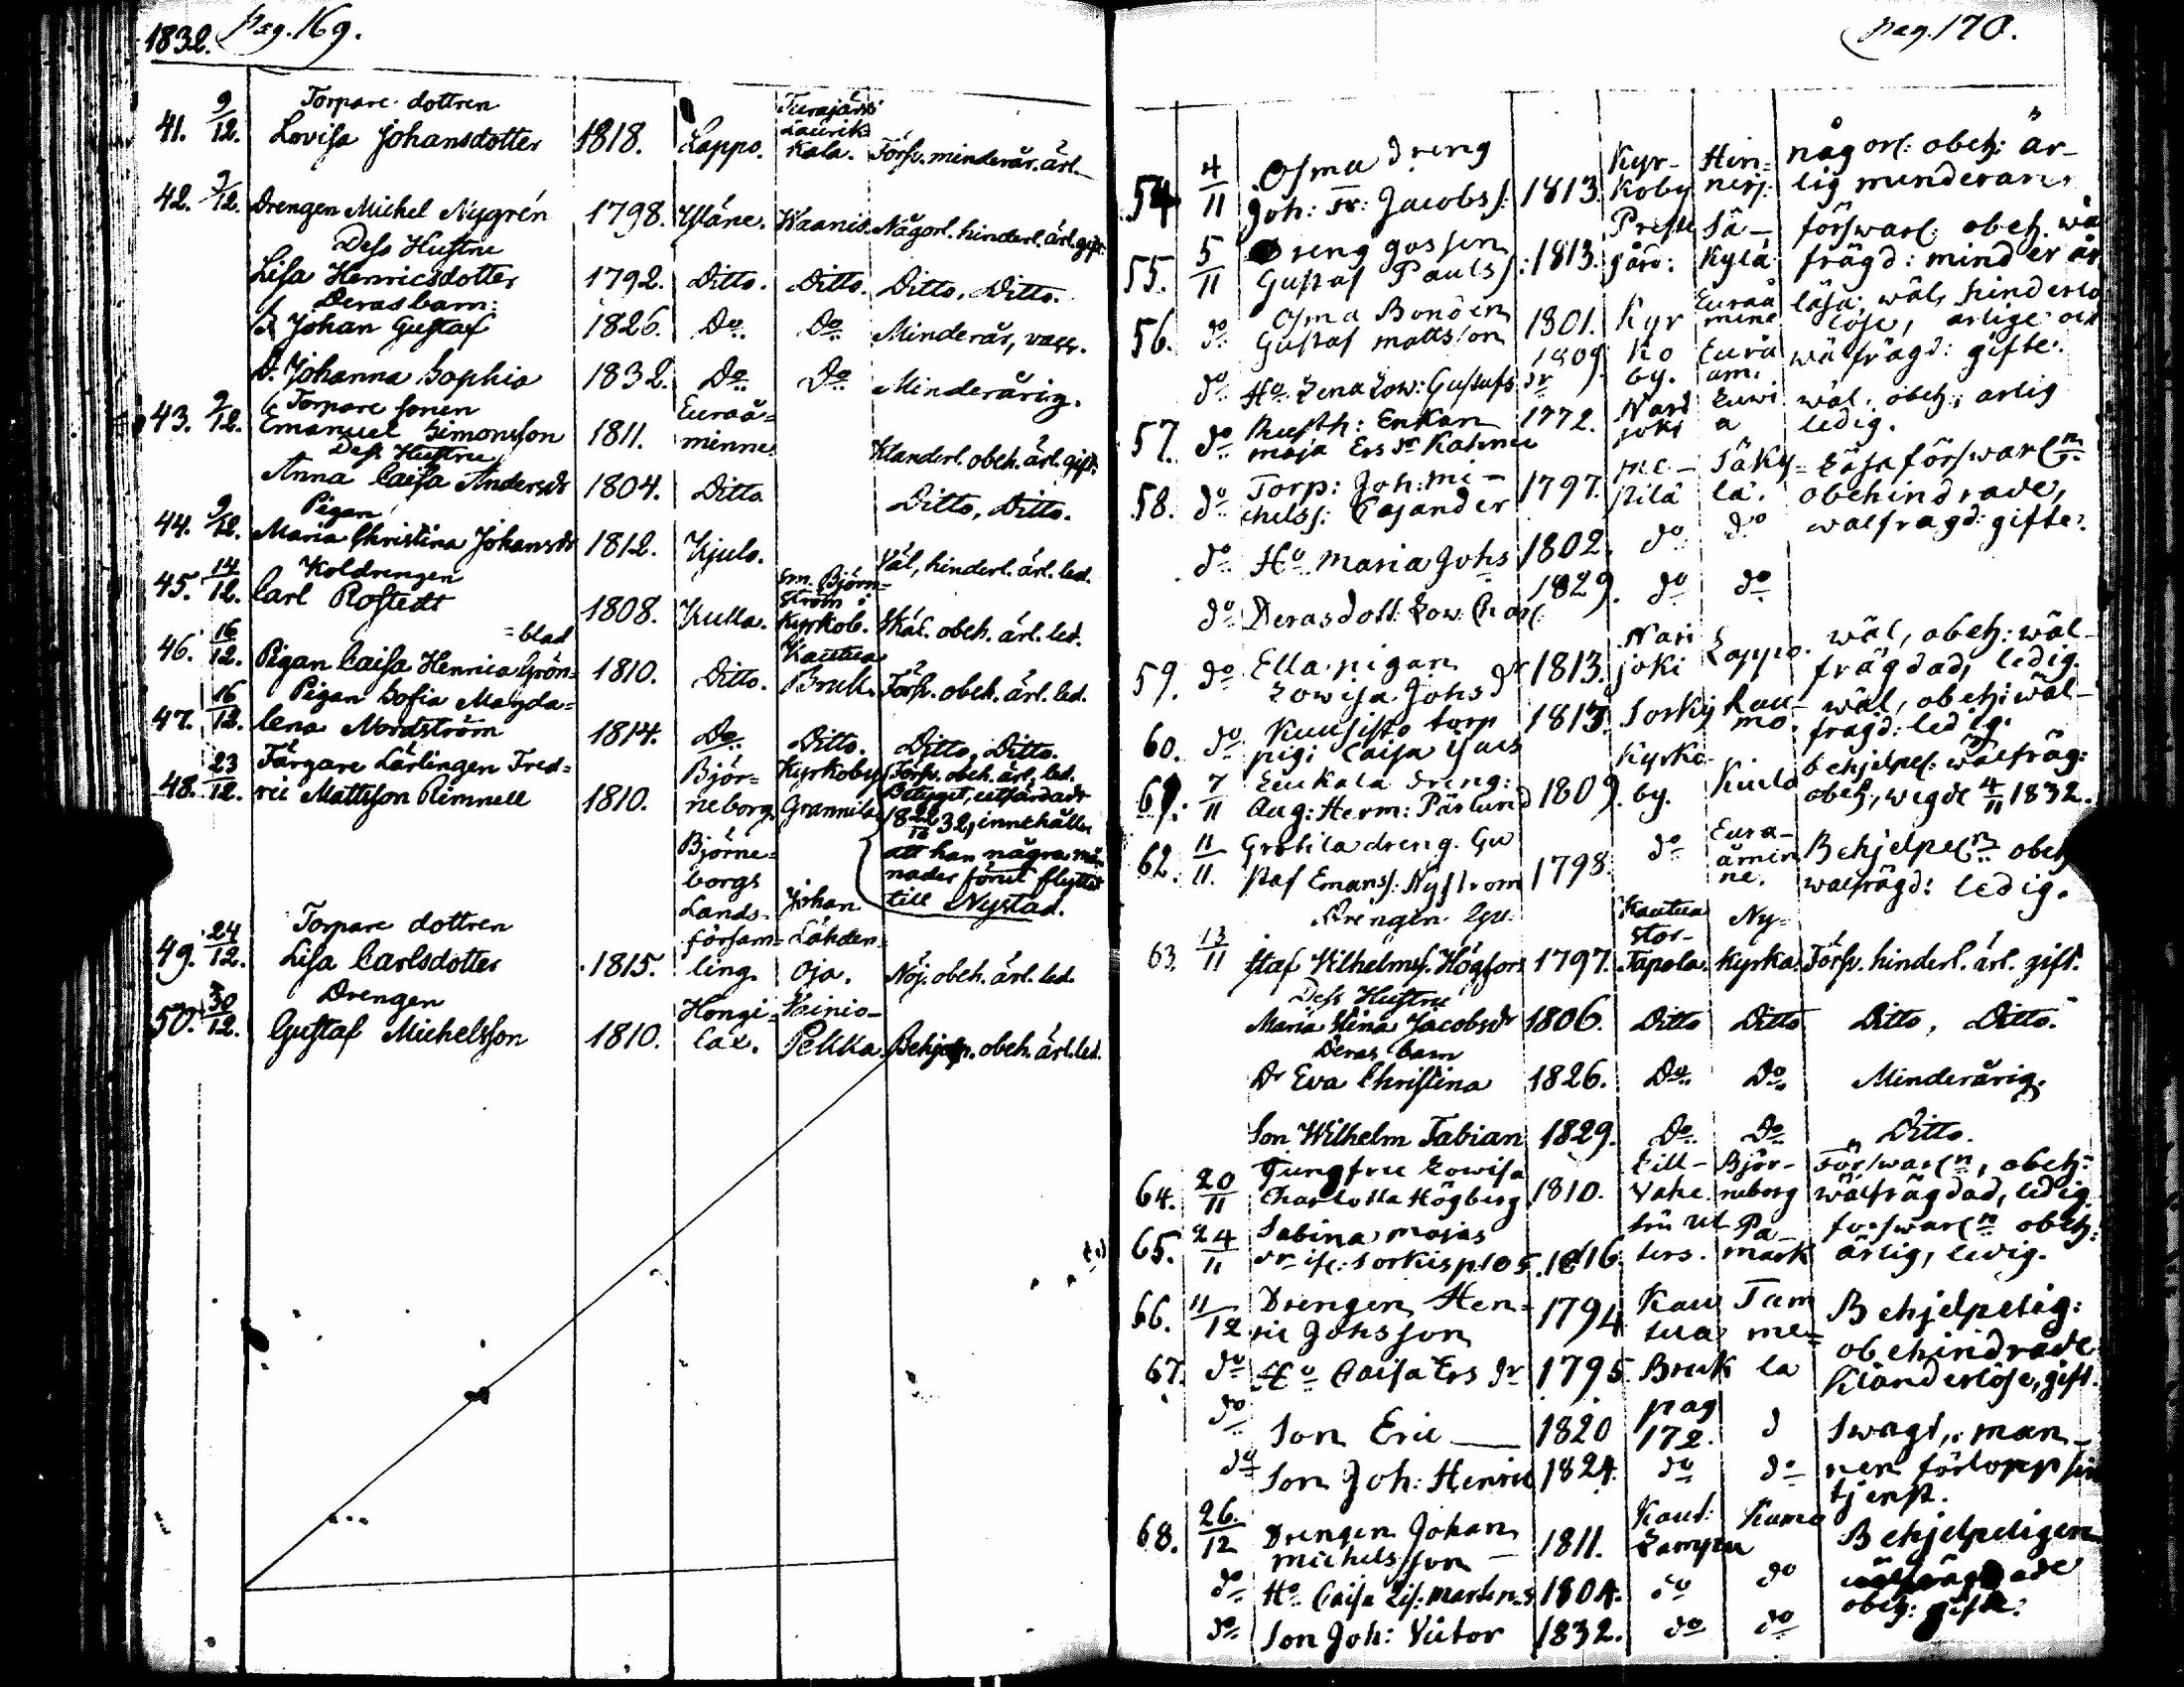 1832. pag. 169.
Torpare dottren
41. 9/12. Lovisa Johansdotter 1818. Lappo. Kala. Försv. minderår. ärl.
42. 9/12. Drengen Michel Nygrén 1798. Yläne. Waanis. Någorl. hinderl. ärl. gift.
Dess Hustru
Lisa Henricsdotter 1792. Ditto. Ditto. Ditto. Ditto.
Deras barn:
Johan Gustaf 1826. Do. Do. Minderår, vacc.
D. Johanna Sophia 1832. Do. Do. Minderårig.
Torpare sonen
43. 9/12. Emanuel Simonsson 1811. Euraå=minne Klanderl. obeh. ärl. gift.
Dess Hustru
Anna Caisa Andersdr 1804. Ditto Ditto, Ditto.
Pigan
44. 9/12. Maria Christina Johansdr 1812. Kjulo. Väl, hinderl. ärl. led.
Koldrengen
45. 14/12. Carl Rostedt 1808. Kulla. Björn=ström i Kyrkob. Skäl. obeh. ärl. led.
=blad
46. 16/12. Pigan Caisa Henrica Grön= 1810. Ditto. Kautua Bruk. Försv. obeh. ärl. led.
Pigan Sofia Magda=
47. 16/12. lena Nordström 1814. Do. Ditto. Ditto, Ditto.
Färgare Lärlingen Fred=
48. 23/12. ric Mattsson Rimnell 1810. Björ=neborg. Kyrkoby Grannila Försv. obeh. ärl. led.
Betyget, utfärdadt
32, innehåller
att han några må=
nader förut flyttat
till Nystad.
Torpare dottren
49. 24/12. Lisa Carlsdotter 1815. Björne=borgs Lands-försam=ling. Johan Lähden=oja. Nöj. obeh. ärl. led.
Drengen
50. 30/12. Gustaf Michelsson 1810. Hongi=lax. Vainio-Pekka. Behjelp. obeh. ärl. led.
pag. 170.
Osma dreng
54 4/11 Joh: Fr: Jacobs: 1813. Kyr-koby Hin=nerj: någorl: obeh: är-lig minderår
55. 5/11 Dreng gossen Gustaf Pauls: 1813. Preste gård: Sä-kylä förswarl: obeh. wäl frägd: minder år
56. do Osma Bonden Gustaf Mattsson 1801. Kyr Euraå minne läsa: wäl, hinderlo
do Ho Lena Low: Gustafs dr 1809. ko by. Eura åm. löse, ärlige och wälfrägd: gifte.
57. do Rusth: Enkan Maja Ers dr 1772. Nari joki wäl. obeh: ärlig ledig.
58. do Torp: Joh: Mi-chelss: Cajander 1797. pilä Säky=lä. Läsa förswarl:n obehindrade,
do Ho Maria Johs 1802. do do wälfrägd: gifte.
do Deras dott: Low: 1829. do do
59. do Ella pigan Lowisa Johs dr 1813. Nari joki Lappo. wäl, obeh: wäl-frägdad, ledig.
60. do Kuusisto torp pig: Caisa 1813. Sorky Rau-mo. wäl, obeh: wäl-frägd: ledig.
61. 7/11 dreng: Aug: Herm: Pärlund 1809. Kyrko-by. Kiula behjelpl: wälfräg: obeh:, wigde 4/11 1832.
62. 11/11. dreng. Gu staf Emanss: Nyström 1798. do Eura-åmin ne. Behjelpel:n obeh wälfrägd: ledig.
Drengen Gu:
63. 13/11 staf Wilhelmss. Högfors 1797. Kautua Stor-Tapola. Ny=kyrka. Försv. hinderl. ärl. gift.
Dess Hustru
Maria Stina Jacobsdr 1806. Ditto Ditto Ditto, Ditto.
Deras barn
Dr Eva Christina 1826. Do. Do. Minderårig.
Son Wilhelm Fabian 1829. Do. Do. Ditto.
64. 20/11 Jungfru Lowisa Charlotta Högberg 1810. Vahe. Björ-neborg Förswarl:n, obeh: wälfrägdad, ledig
65. 24/11 Sabina Majas 1816. mark förswarl:n obeh: ärlig, ledig.
66. 11/12 Drengen Hen=ric Johsson 1794 Kau tua Tam me= Behjelpelig: obehindrade
67. do Ho Caisa Ers dr 1795 Bruk la Klanderlöse, gift.
do Son Eric — 1820 pag 172. d Swagt, man-
do Son Joh: Henric 1824. do do nen förlopp sin tjenst.
68. 26./12 Drengen Johan Michelsson — 1811. Kaut: Kumo Behjelpeligen
do Ho Caisa Lis: Martens 1804. do do wälfrägdade
do Son Joh: Victor 1832. do do obeh: gifte.